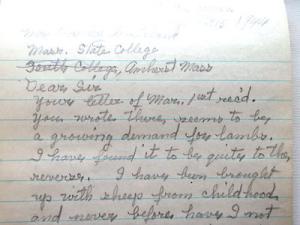 15 1944
Mass. State College
South College, Amherst Mass
Dear Sir
Your letter of Mar. 1st rec'd.
You wrote there seems to be
a growing demand for lambs.
I have found it to be quite to the
reverse. I have been brought
up with sheep from childhood
and never before have I not